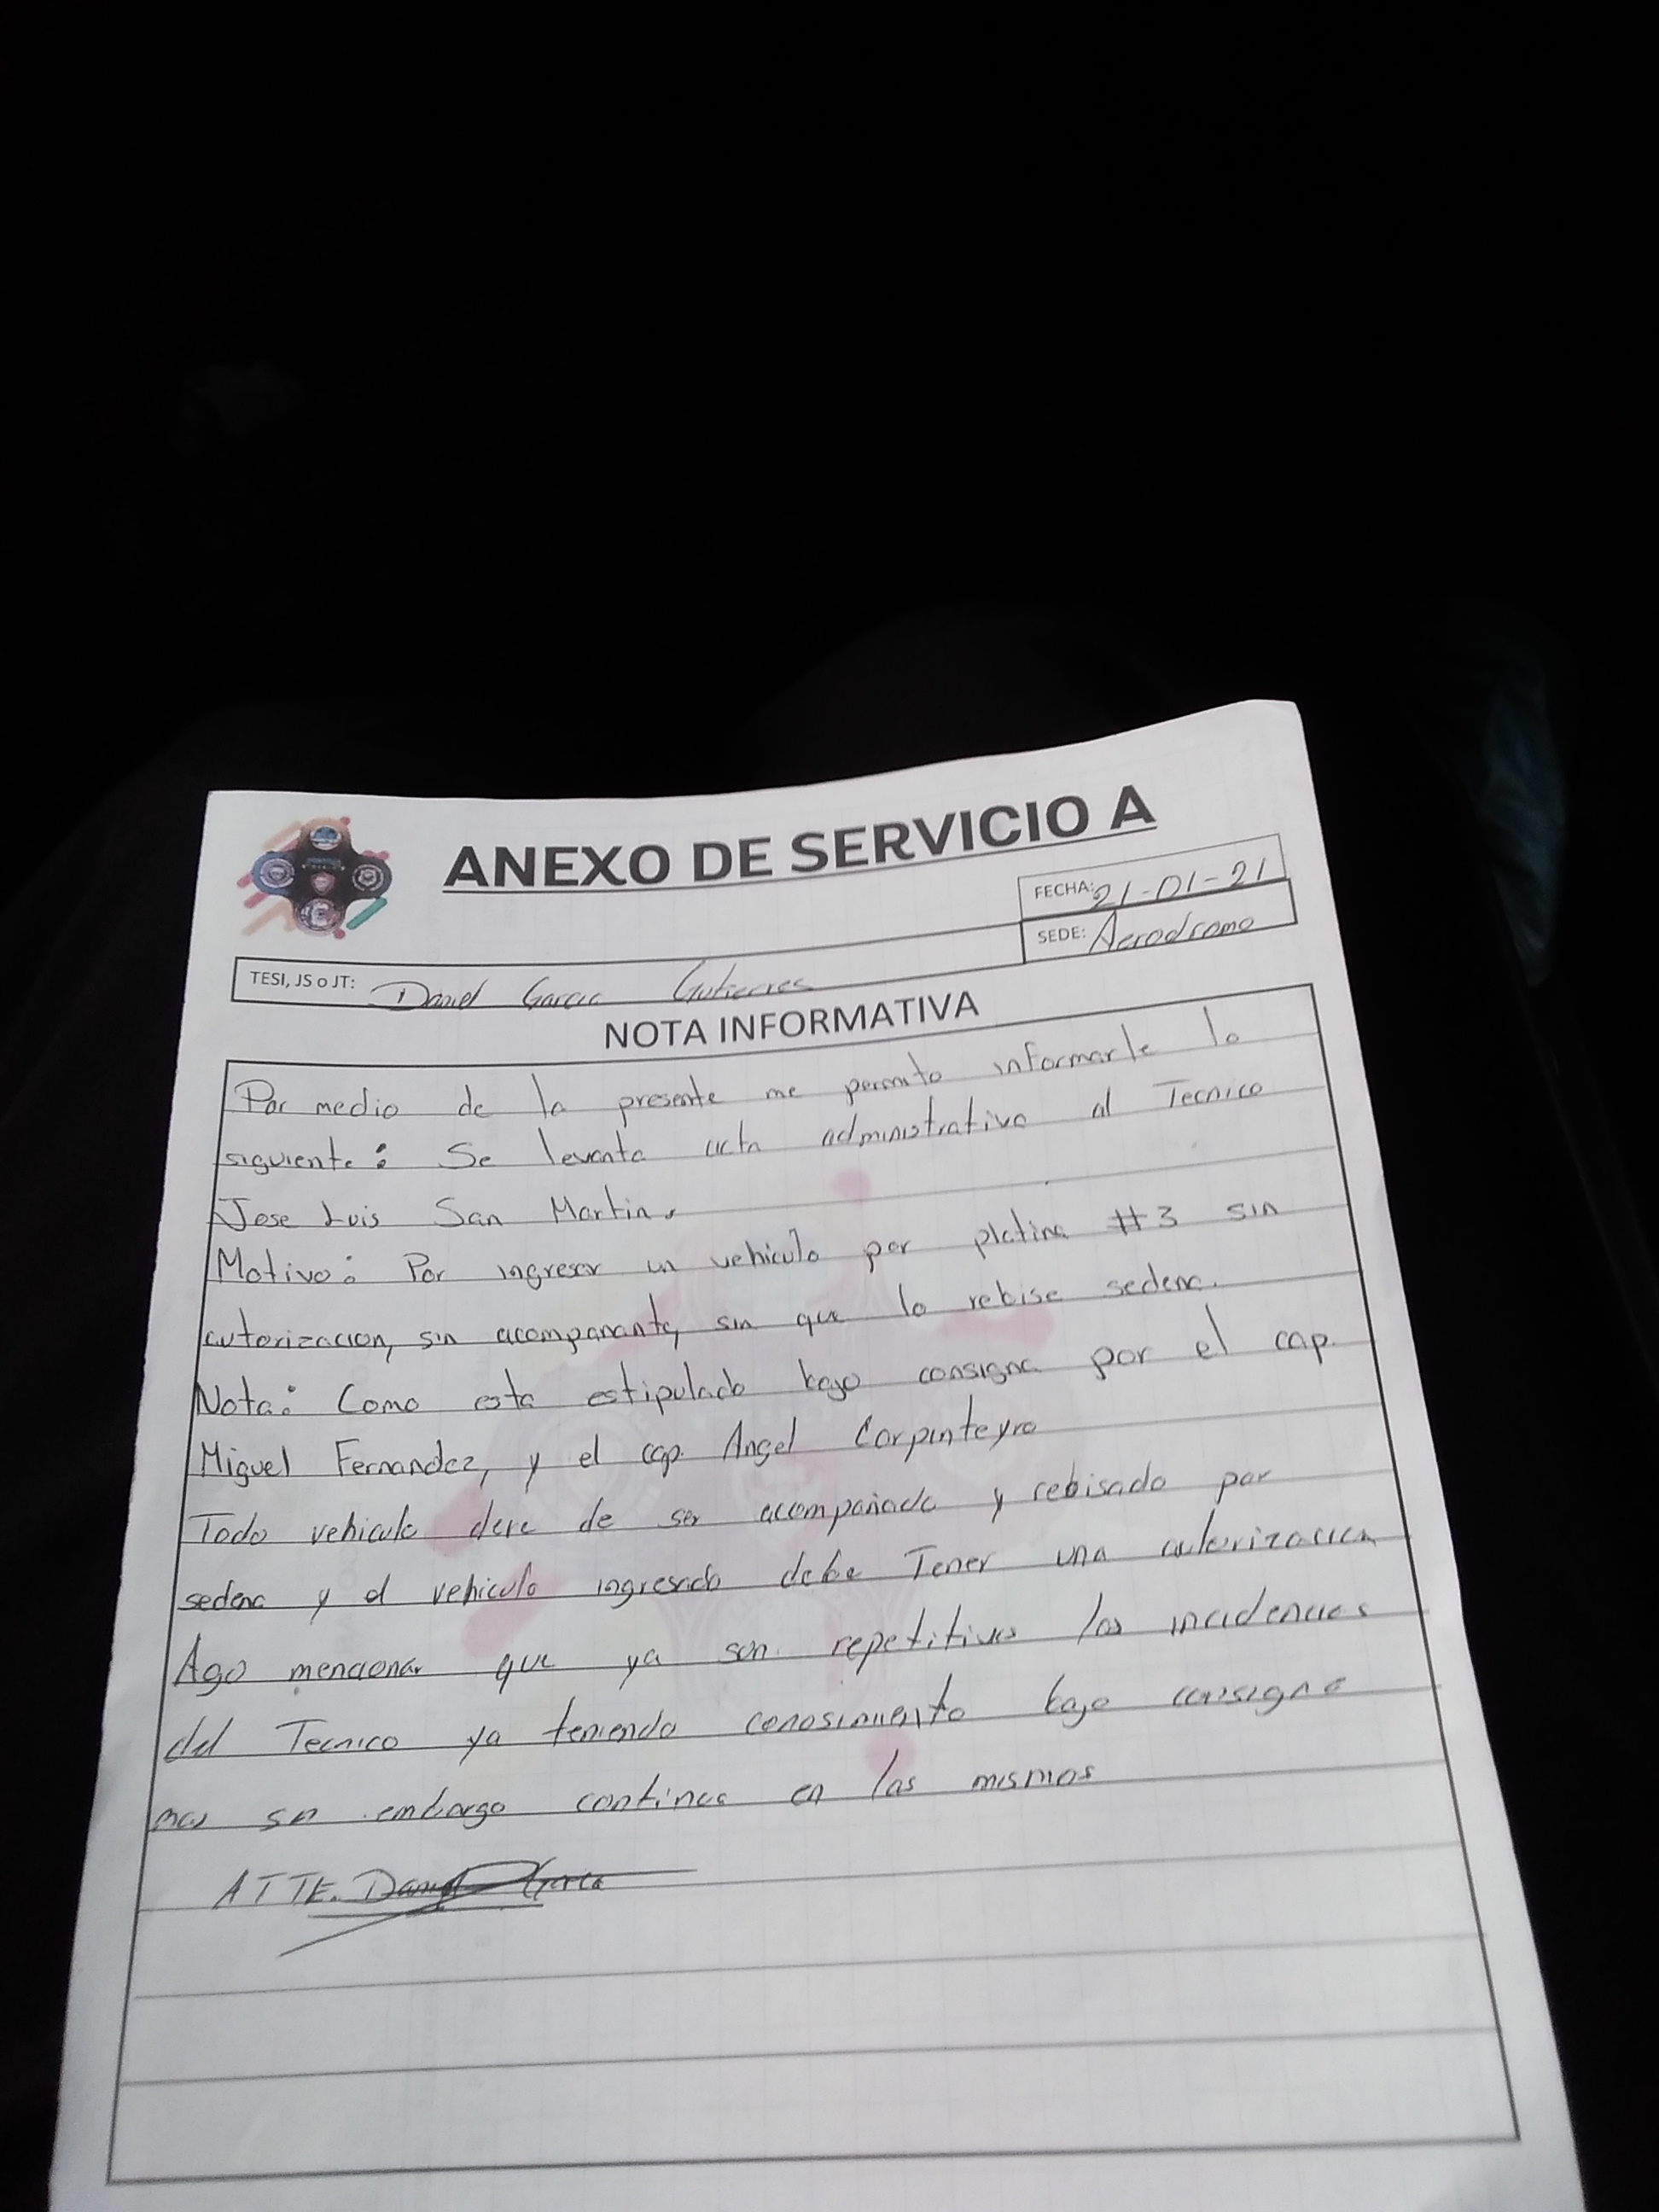 ANEXO DE SERVICIO A
FECHA: 21-01-21
SEDE: Aerodromo
TESI, JS o JT: Daniel Garcia Gutierres
NOTA INFORMATIVA
Por medio de la presente me permito informarle lo
siguiente: Se levanta acta administrativa al Tecnico
Jose Luis San Martin.
Motivo: Por ingresar un vehiculo por platina #3 sin
autorizacion, sin acompanante, sin que lo rebise sedena.
Nota: Como esta estipulado bajo consigna por el cap.
Miguel Fernandez, y el cap. Angel Carpinteyro
Todo vehiculo dere de ser acompañado y rebisado por
sedena y el vehiculo ingresado debe Tener una autorizacion
Ago mencionar que ya son repetitivas las incidencias
del Tecnico ya teniendo conosimiento bajo consigna
mas sn embargo continua en las mismas
ATTE. Daniel Garcia